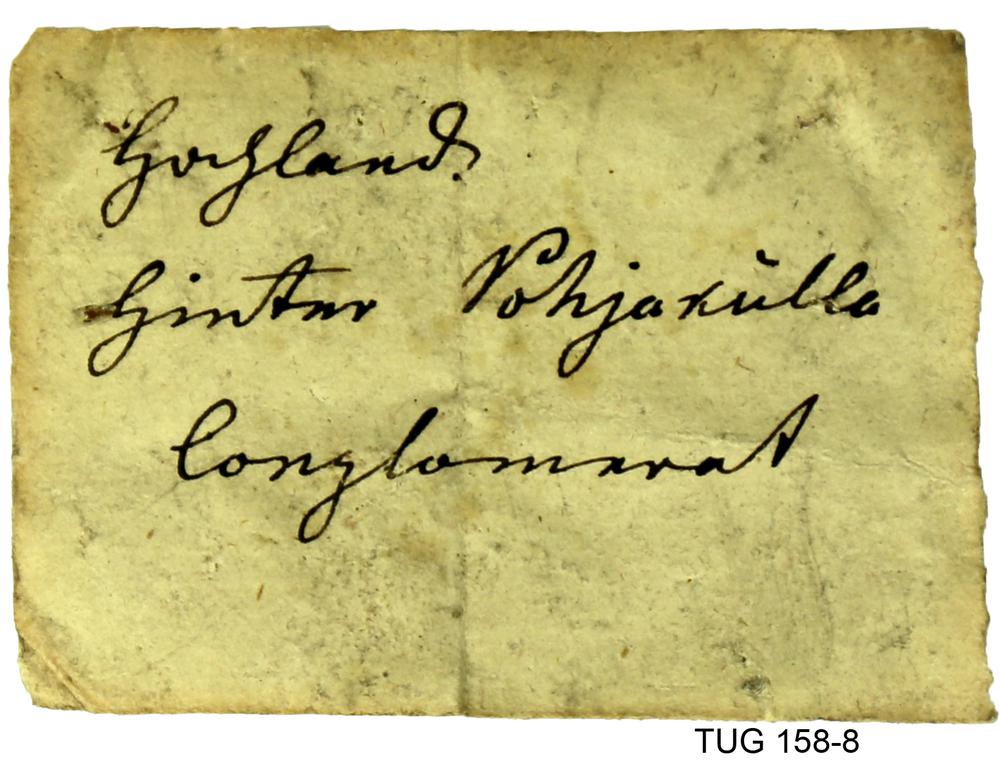 Hochland.
Hinter Pohjakülla
Conglomerat
TUG 158-8